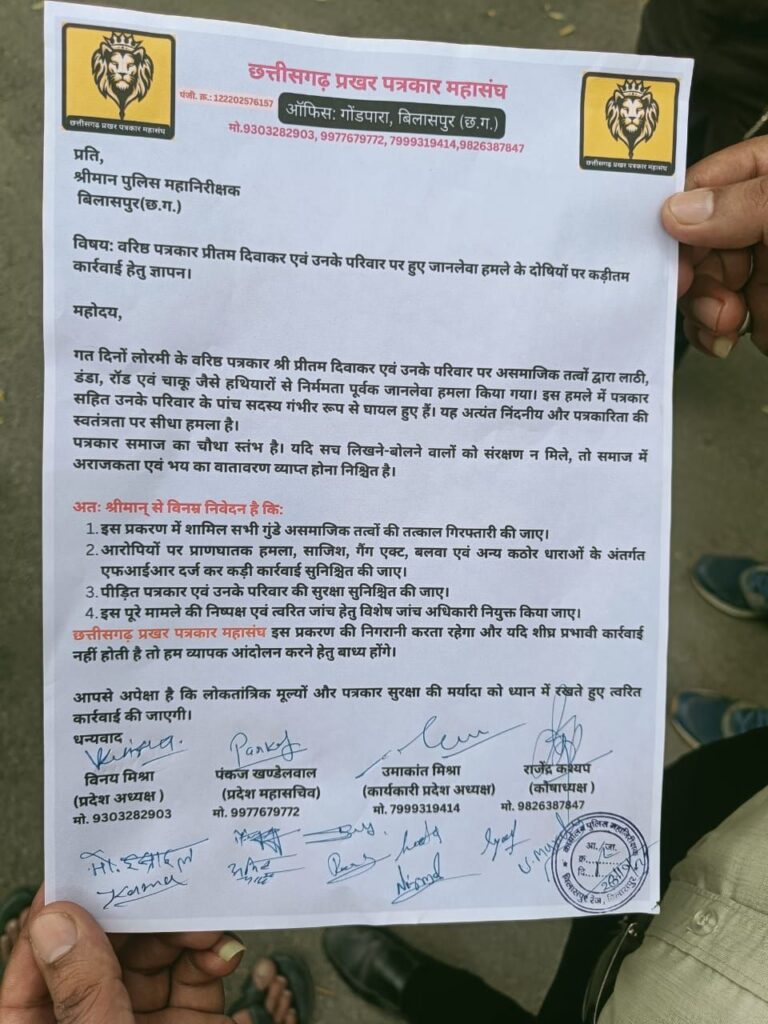 छत्तीसगढ़ प्रखर पत्रकार महासंघ
पंजी. क्र.: 122202576157
ऑफिस: गोंडपारा, बिलासपुर (छ.ग.)
मो.9303282903, 9977679772, 7999319414,9826387847
छत्तीसगढ़ प्रखर पत्रकार महासंघ
छत्तीसगढ़ प्रखर पत्रकार महासंघ
प्रति,
श्रीमान पुलिस महानिरीक्षक
बिलासपुर(छ.ग.)
विषय: वरिष्ठ पत्रकार प्रीतम दिवाकर एवं उनके परिवार पर हुए जानलेवा हमले के दोषियों पर कड़ीतम
कार्रवाई हेतु ज्ञापन।
महोदय,
गत दिनों लोरमी के वरिष्ठ पत्रकार श्री प्रीतम दिवाकर एवं उनके परिवार पर असमाजिक तत्वों द्वारा लाठी,
डंडा, रॉड एवं चाकू जैसे हथियारों से निर्ममता पूर्वक जानलेवा हमला किया गया। इस हमले में पत्रकार
सहित उनके परिवार के पांच सदस्य गंभीर रूप से घायल हुए हैं। यह अत्यंत निंदनीय और पत्रकारिता की
स्वतंत्रता पर सीधा हमला है।
पत्रकार समाज का चौथा स्तंभ है। यदि सच लिखने-बोलने वालों को संरक्षण न मिले, तो समाज में
अराजकता एवं भय का वातावरण व्याप्त होना निश्चित है।
अतः श्रीमान् से विनम्र निवेदन है कि:
1. इस प्रकरण में शामिल सभी गुंडे असमाजिक तत्वों की तत्काल गिरफ्तारी की जाए।
2. आरोपियों पर प्राणघातक हमला, साजिश, गैंग एक्ट, बलवा एवं अन्य कठोर धाराओं के अंतर्गत
एफआईआर दर्ज कर कड़ी कार्रवाई सुनिश्चित की जाए।
3. पीड़ित पत्रकार एवं उनके परिवार की सुरक्षा सुनिश्चित की जाए।
4. इस पूरे मामले की निष्पक्ष एवं त्वरित जांच हेतु विशेष जांच अधिकारी नियुक्त किया जाए।
छत्तीसगढ़ प्रखर पत्रकार महासंघ इस प्रकरण की निगरानी करता रहेगा और यदि शीघ्र प्रभावी कार्रवाई
नहीं होती है तो हम व्यापक आंदोलन करने हेतु बाध्य होंगे।
आपसे अपेक्षा है कि लोकतांत्रिक मूल्यों और पत्रकार सुरक्षा की मर्यादा को ध्यान में रखते हुए त्वरित
कार्रवाई की जाएगी।
धन्यवाद
विनय मिश्रा
(प्रदेश अध्यक्ष )
मो. 9303282903
पंकज खण्डेलवाल
(प्रदेश महासचिव)
मो. 9977679772
उमाकांत मिश्रा
(कार्यकारी प्रदेश अध्यक्ष)
मो. 7999319414
राजेंद्र कश्यप
(कोषाध्यक्ष )
मो. 9826387847
Pankaj
Nirmal
कार्यालय पुलिस महानिरीक्षक
आ./जा.
क्र.
दि.
बिलासपुर रेंज, बिलासपुर